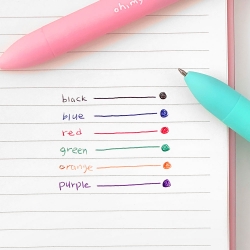 ohmy
black
blue
red
green
orange
purple